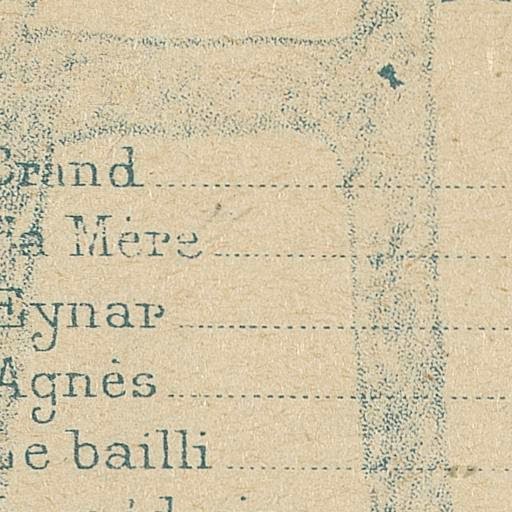 Grand
la Mère
Eynar
Agnès
Le bailli